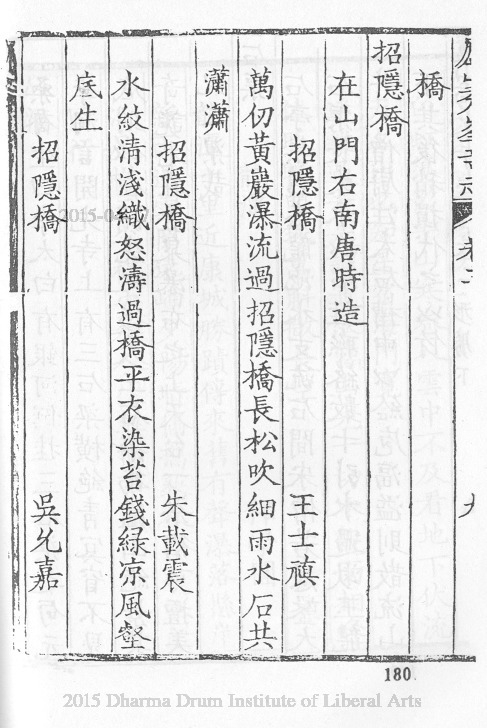 橋
招隱橋
在山門右南唐時造
招隱橋 王士禛
萬仞黃巖瀑流過招隱橋長松吹細雨水石共
瀟瀟
招隱橋 朱載震
水紋清淺織怒濤過橋平衣染苔錢緑凉風壑
底生
招隱橋 吳允嘉
180
2015 Dharma Drum Institute of Liberal Arts